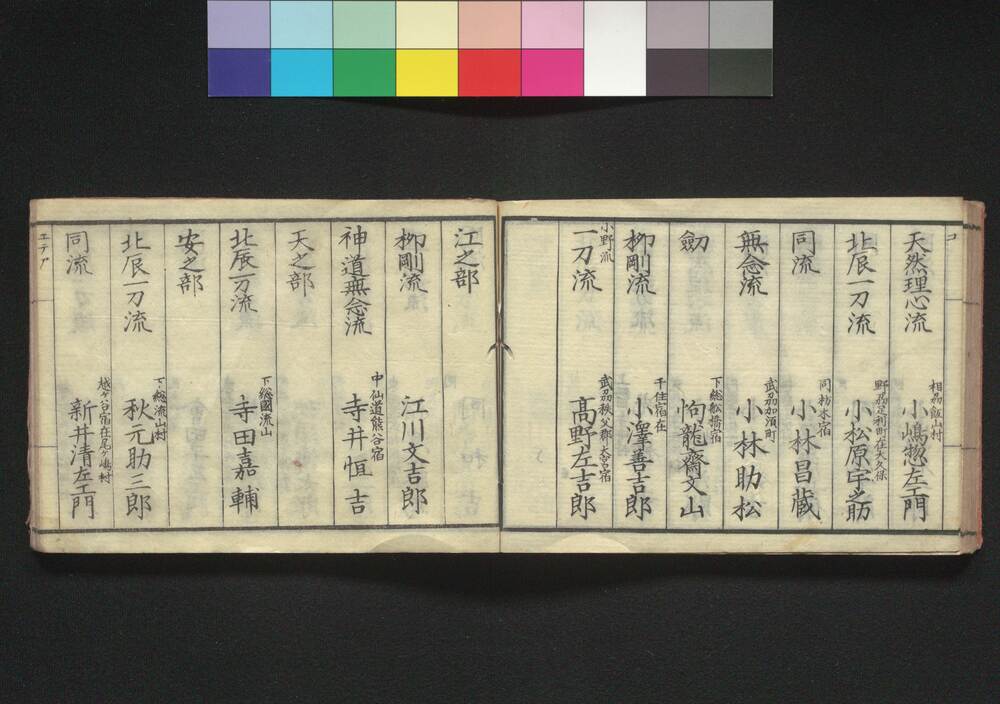 コ
天然理心流
相刕飯山村
小嶋惣左エ門
北辰一刀流
野刕足利町在大久保
小松原宇之助
同流
同栃木宿
小林昌蔵
無念流
武刕加須町
小林助松
劔
下総船橋宿
拘龍齋文山
柳剛流
千住宿在
小澤善吉郎
小野流
一刀流
武刕秩父郡大宮宿
髙野左吉郎
江之部
柳剛流
江川文吉郎
神道無念流
中仙道熊谷宿
寺井恒吉
天之部
北辰一刀流
下総國流山
寺田嘉輔
安之部
北辰一刀流
下総流山村
秋元助三郎
同流
越ヶ谷宿在尾ヶ嶋村
新井清左エ門
エテア